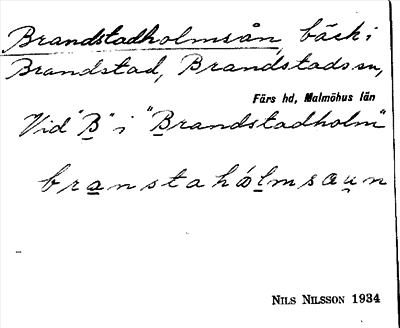 Brandstadholmsån, bäck i
Brandstad, Brandstads sn,
Färs hd, Malmöhus län
Vid "B" i "Brandstadholm"
branstahólmsaun
NILS NILSSON 1934